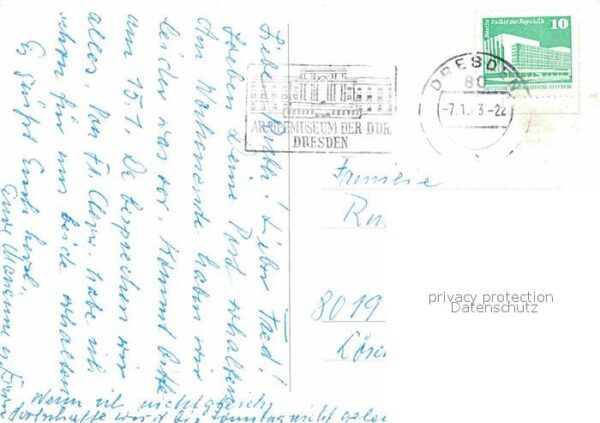 Liebe Kathi! Lieber Fred!
Soeben Deine Post erhalten.
Am Wochenende haben wir
leider was vor. Kommt bitte
am 15.1. Da besprechen wir
alles. Von Fr. habe ich
schon für uns beide erhalten
Es grüßt Euch herzl.
Eure Marianne u.
Wenn ich nicht gleich
wird bis Sonntag nicht
Berlin Palast der Republik
10
DEUTSCHE DEMOKRATISCHE REPUBLIK
DRESDEN
80
-7.1.83.-22
ARMEEMUSEUM DER DDR
DRESDEN
Familie
8019
privacy protection
Datenschutz